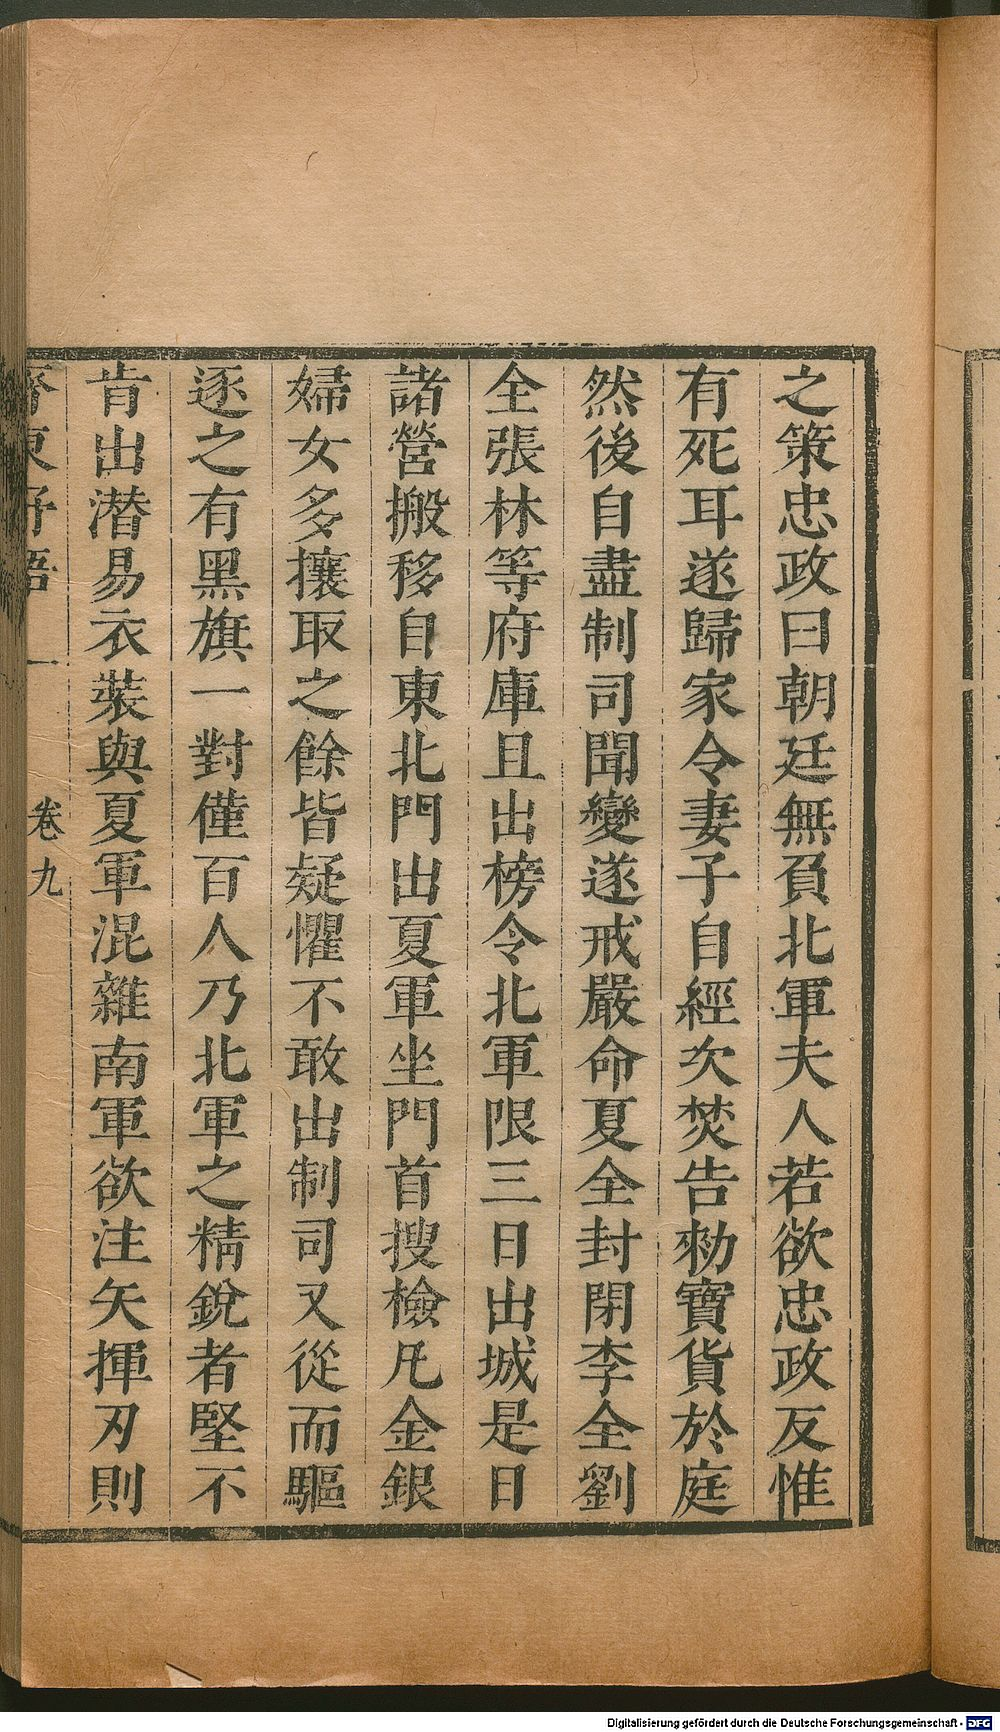 之策忠政曰朝廷無負北軍夫人若欲忠政反惟
有死耳遂歸家令妻子自經次焚告勑寶貨於庭
然後自盡制司聞變遂戒嚴命夏全封閉李全劉
全張林等府庫且出榜令北軍限三日出城是日
諸營搬移自東北門出夏軍坐門首搜檢凡金銀
婦女多攘取之餘皆疑懼不敢出制司又從而驅
逐之有黑旗一對僅百人乃北軍之精銳者堅不
肯出潛易衣裝與夏軍混雜南軍欲注矢揮刃則
齊東野語 卷九
Digitalisierung gefördert durch die Deutsche Forschungsgemeinschaft - DFG